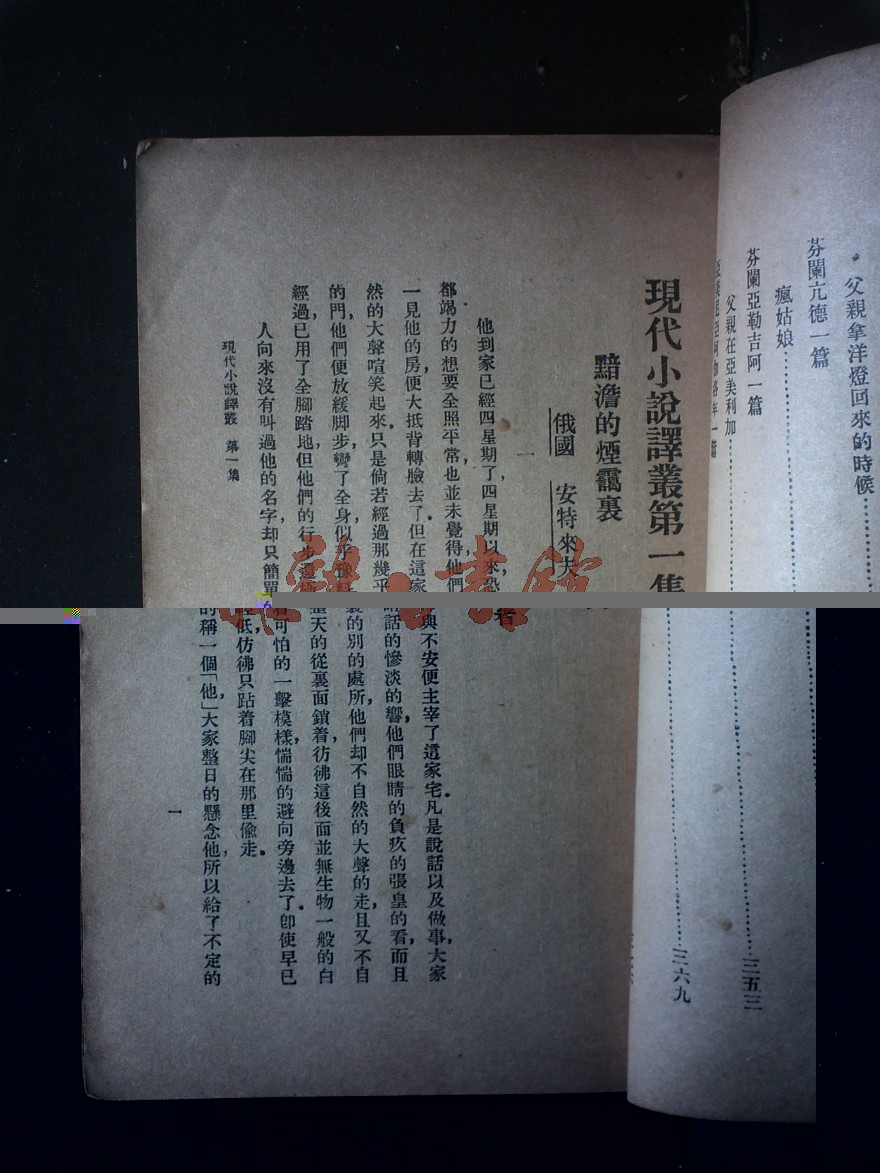 父親拿洋燈回來的時候
芬闌亢德一篇
瘋姑娘……三六九
芬闌亞勒吉阿一篇
父親在亞美利加……三五三
現代小說譯叢第一集
黯澹的煙靄裏
俄國 安特來夫
一
他到家已經四星期了，四星期以來，恐怖與不安便主宰了這家宅。凡是說話以及做事，大家
都竭力的想要全照平常，也並未覺得他們話的慘淡的響，他們眼睛的負疚的張皇的看，而且
一見他的房便大抵背轉臉去了。但在這家裏的別的處所，他們却不自然的大聲的走，且又不自
然的大聲喧笑起來。只是倘若經過那幾乎整天的從裏面鎖着，彷彿這後面並無生物一般的白
的門，他們便放緩脚步，彎了全身，似乎豫料着可怕的一擊模樣，惴惴的避向旁邊去了。即使早已
經過，已用了全脚踏地，但他們的行步還輕低，彷彿只跕着脚尖在那里偷走。
人向來沒有叫過他的名字，却只簡單的稱一個「他」，大家整日的懸念他，所以給了不定的
現代小說譯叢 第一集
一